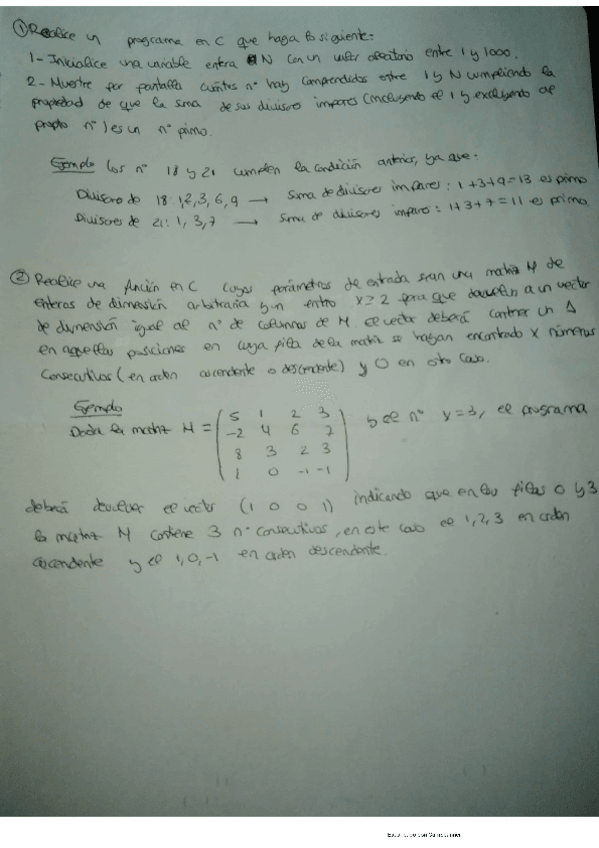 ① Realice un programa en C que haga lo siguiente:
1- Inicialice una variable entera N con un valor aleatorio entre 1 y 1000.
2- Muestre por pantalla cuántos nº hay comprendidos entre 1 y N cumpliendo la
propiedad de que la suma de sus divisores impares (incluyendo el 1 y excluyendo al
propio nº) es un nº primo.
Ejemplo los nº 18 y 21 cumplen la condición anterior, ya que:
Divisores de 18: 1, 2, 3, 6, 9 → Suma de divisores impares: 1+3+9=13 es primo
Divisores de 21: 1, 3, 7 → Suma de divisores impares: 1+3+7=11 es primo
② Realice una función en C cuyos parámetros de entrada sean una matriz M de
enteros de dimensión arbitraria y un entero x≥2 para que devuelva un vector
de dimensión igual al nº de columnas de M. El vector deberá contener un 1
en aquellas posiciones en cuya fila de la matriz se hayan encontrado x números
consecutivos (en orden ascendente o descendente) y 0 en otro caso.
Ejemplo
Dada la matriz M = y el nº x=3, el programa
5 1 2 3
-2 4 6 7
8 3 2 3
1 0 -1 -1
deberá devolver el vector (1 0 0 1) indicando que en las filas 0 y 3
la matriz M contiene 3 nº consecutivos, en este caso el 1, 2, 3 en orden
ascendente y el 1, 0, -1 en orden descendente.